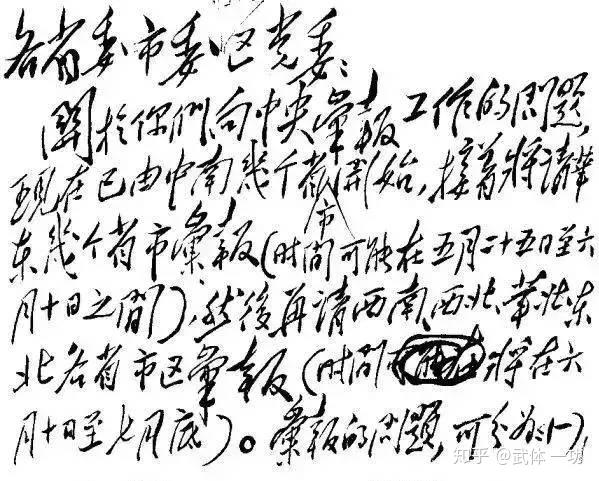 各省委市委区党委:
關於你們向中央彙報工作的問題,
現在已由中南幾个省市開始,接着將請華
东幾个省市彙報(时间可能在五月二十五日至六
月十日之间),然後再請西南、西北、華北、东
北各省市区彙報(时间 將在六
月十日至七月底)。彙報的問題,可分为:(一),
知乎 @武体一功